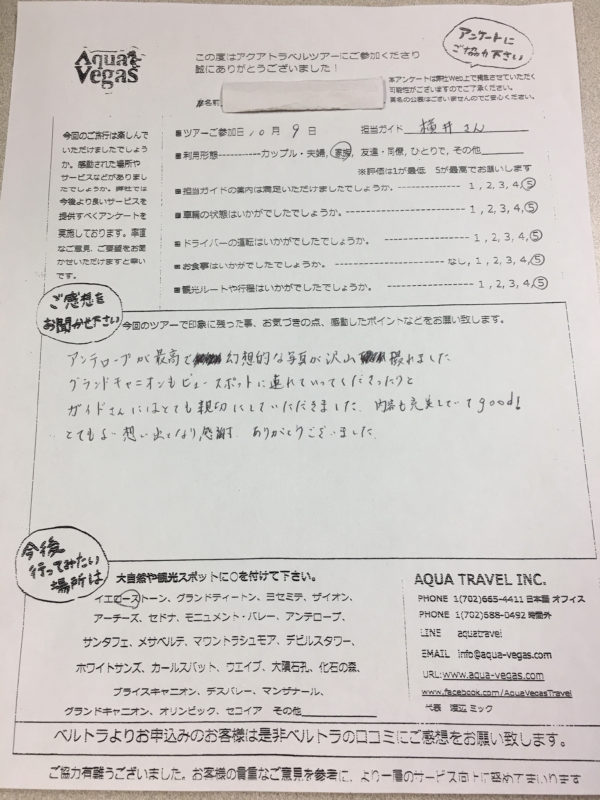 Aqua Vegas
この度はアクアトラベルツアーにご参加くださり
誠にありがとうございました！
アンケートに
ご協力下さい
本アンケートは弊社Web上で掲載させていただく
可能性がございますのでご了承ください。
実名の公表はございませんのでご安心ください。
お名前
今回のご旅行は楽しんで
いただけましたでしょう
か。感動された場所や
サービスなどがありまし
たでしょうか。弊社では
今後より良いサービスを
提供すべくアンケートを
実施しております。率直
なご意見、ご要望をお聞
かせいただけますと幸い
です。
■ツアーご参加日 10月 9日 担当ガイド 横井さん
■利用形態-----------カップル・夫婦、家族、友達・同僚、ひとりで、その他
※評価は1が最低 5が最高でお願いします
■担当ガイドの案内は満足いただけましたでしょうか。---------------- 1, 2, 3, 4, ⑤
■車輌の状態はいかがでしたでしょうか。---------------- 1, 2, 3, 4, ⑤
■ドライバーの運転はいかがでしたでしょうか。---------------- 1, 2, 3, 4, ⑤
■お食事はいかがでしたでしょうか。---------------- なし, 1, 2, 3, 4, ⑤
■観光ルートや行程はいかがでしたでしょうか。---------------- 1, 2, 3, 4, ⑤
ご感想を
お聞かせ下さい
今回のツアーで印象に残った事、お気づきの点、感動したポイントなどをお願い致します。
アンテロープが最高で幻想的な写真が沢山撮れました
グランドキャニオンもビュースポットに連れていってくださったりと
ガイドさんにはとても親切にしていただきました。内容も充実していてgood!
とてもよい想い出となり感謝 ありがとうございました
今後
行ってみたい
場所は
大自然や観光スポットに○を付けて下さい。
イエローストーン、グランドティートン、ヨセミテ、ザイオン、
アーチーズ、セドナ、モニュメント・バレー、アンテロープ、
サンタフェ、メサベルテ、マウントラシュモア、デビルスタワー、
ホワイトサンズ、カールスバット、ウエイブ、大隕石孔、化石の森、
ブライスキャニオン、デスバレー、マンザナール、
グランドキャニオン、オリンピック、セコイア その他
AQUA TRAVEL INC.
PHONE 1(702)665-4411 日本語 オフィス
PHONE 1(702)588-0492 時間外
LINE aquatravel
EMAIL info@aqua-vegas.com
URL:www.aqua-vegas.com
www.facebook.com/AquaVegasTravel
代表 渡辺 ミック
ベルトラよりお申込みのお客様は是非ベルトラの口コミにご感想をお願い致します。
ご協力有難うございました。お客様の貴重なご意見を参考に、より一層のサービス向上に努めてまいります